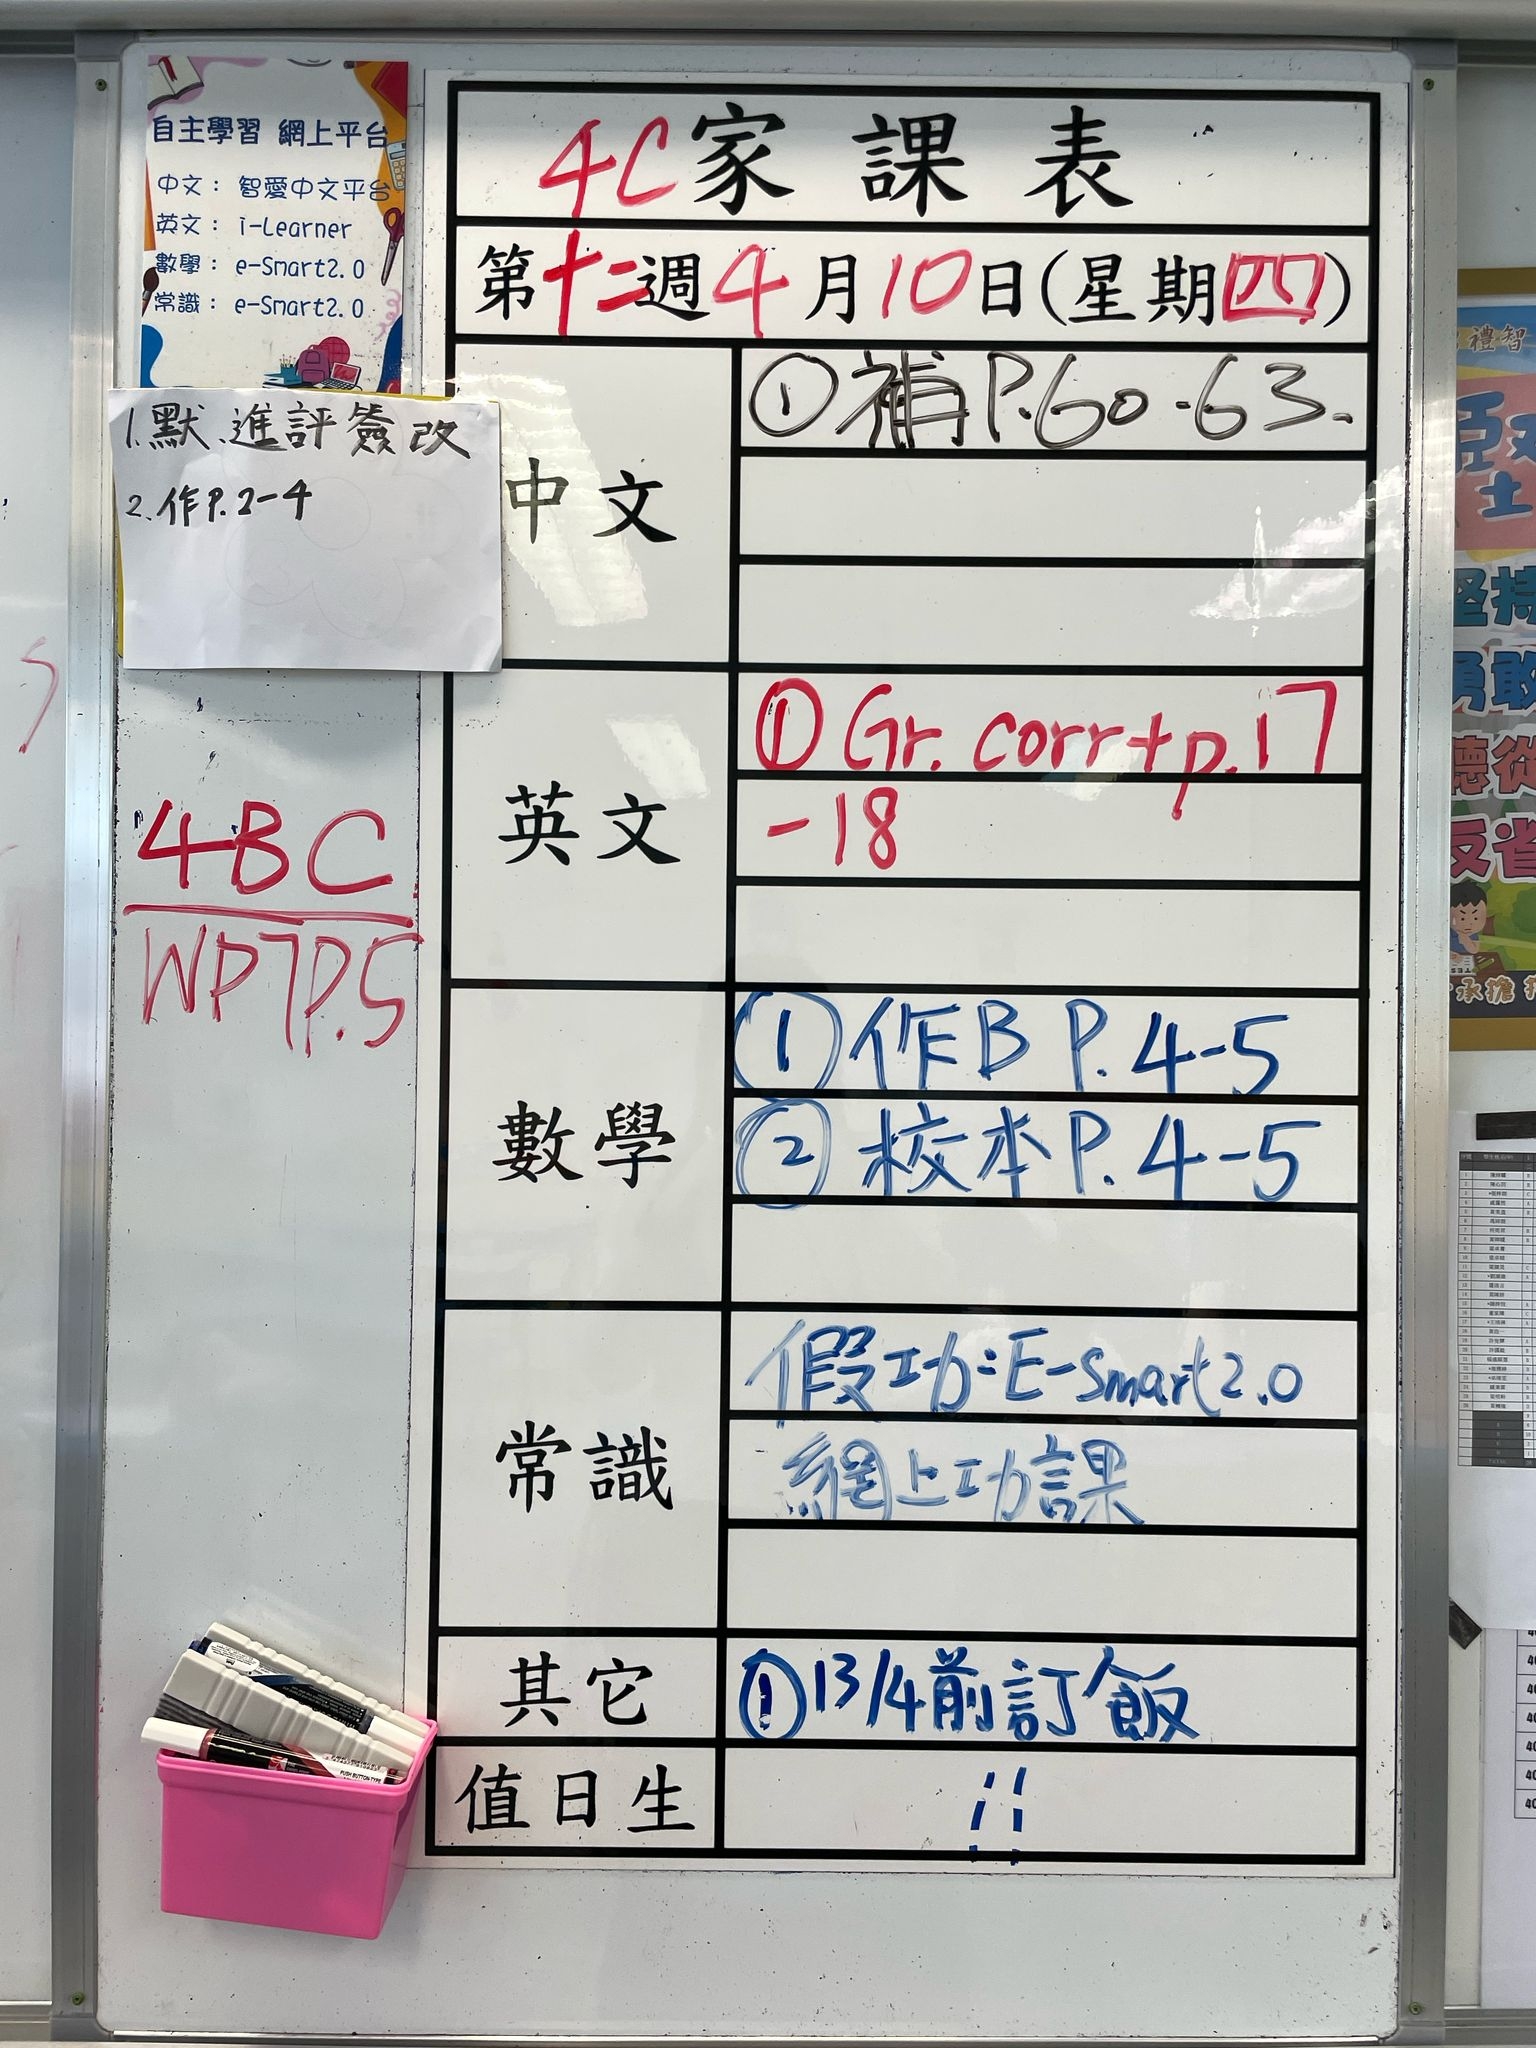 自主學習 網上平台
中文： 智愛中文平台
英文： i-Learner
數學： e-Smart2.0
常識： e-Smart2.0
1.默、進評簽改
2.作P.2-4
4BC
WP7P.5
4C家課表
第十二週4月10日(星期四)
中文
①補P.60-63.
英文
①Gr. corr+p.17
-18
數學
①作B P.4-5
②校本P.4-5
常識
假功:E-Smart2.0
網上功課
其它
①13/4前訂飯
值日生
禮智
堅持
勇敢
反省
承擔
PUSH BUTTON TYPE